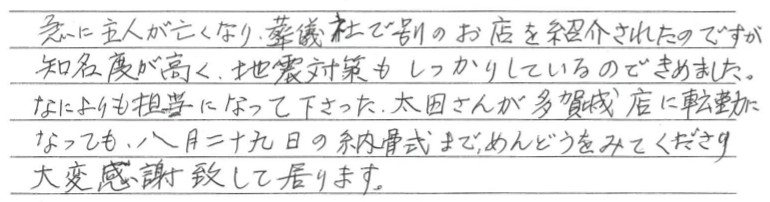 急に主人が亡くなり、葬儀社で別のお店を紹介されたのですが
知名度が高く、地震対策もしっかりしているのできめました。
なによりも担当になって下さった、太田さんが多賀城店に転勤に
なっても、八月二十九日の納骨式まで、めんどうをみてくださり
大変感謝致して居ります。